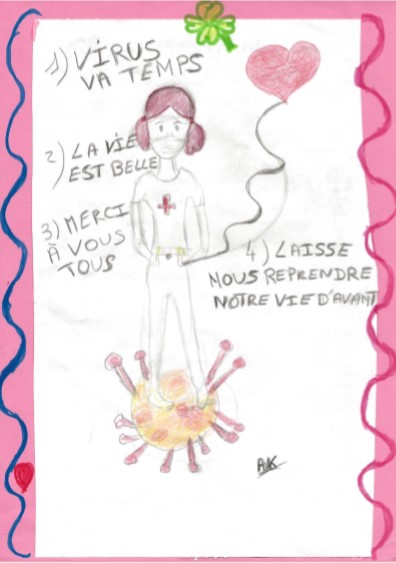 1) VIRUS
VA TEMPS
2) LA VIE
EST BELLE
3) MERCI
À VOUS
TOUS
4) LAISSE
NOUS REPRENDRE
NOTRE VIE D'AVANT
AK